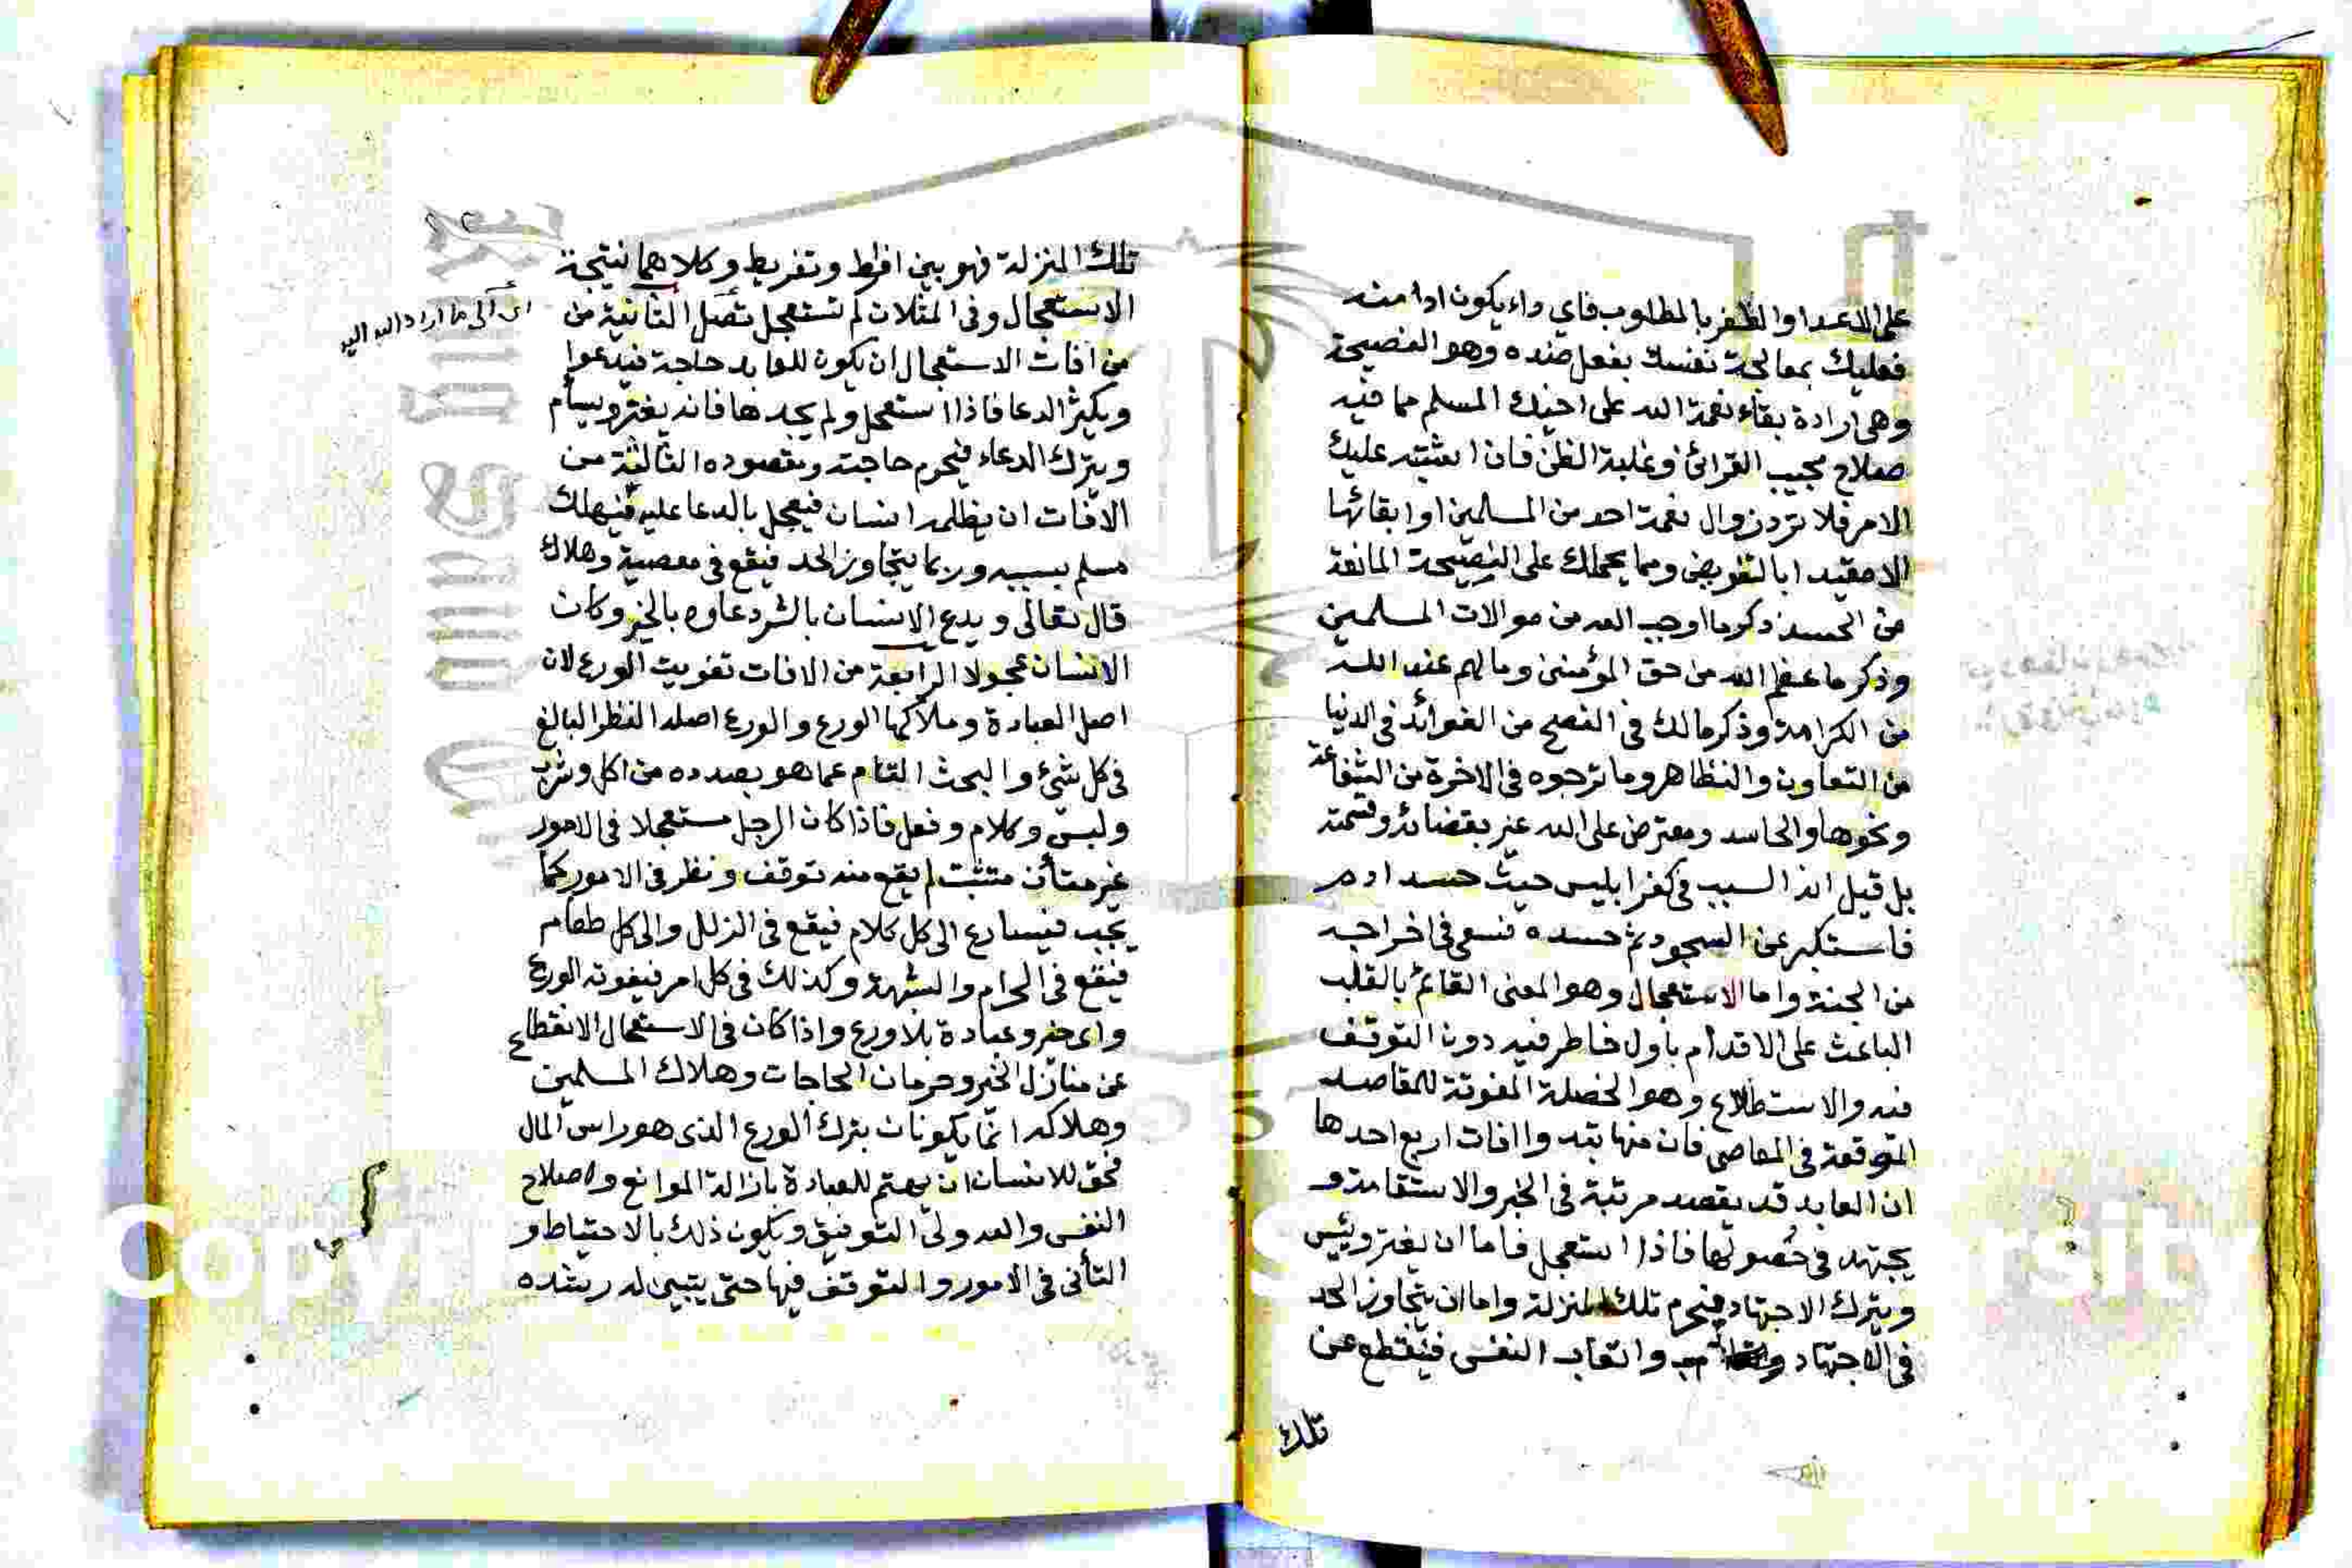 على الاعدا والظفر بالمطلوب فاي داء يكون ادا منه
فعليك بمعالجة نفسك بفعل ضده وهو النصيحة
وهي ارادة بقاء نعمة الله على اخيك المسلم مما فيه
صلاح بحيب القرائن وغلبة الظن فان اشتبه عليك
الامر فلا ترد زوال نعمة احد من المسلمين او ابقائها
الا مقيدا بالتفويض ومما يحملك على النصيحة المانعة
من الحسد ذكر ما اوجب الله من موالات المسلمين
وذكر ما عظم الله من حق المؤمنين وما لهم عند الله
من الكرامة وذكر مالك في النصح من الفوائد في الدنيا
من التعاون والتظاهر وما ترجوه في الاخرة من الشفاعة
ونحوها والحاسد ومعترض على الله غير بقضائه وقسمته
بل قيل انه السبب في كفر ابليس حيث حسد ادم
فاستكبر عن السجود ثم حسده فسعى في اخراجه
من الجنة واما الاستعجال وهو المعنى القائم بالقلب
الباعث على الاقدام باول خاطر فيه دون التوقف
فيه والاستطلاع وهو الخصلة المفوتة للمقاصد
الموقعة في المعاصي فان منها تبد واافات اربع احدها
ان العابد قد يقصد مرتبة في الخير والاستقامة و
يجتهد في حصولها فاذا استعجل فاما ان يفتر وييس
ويترك الاجتهاد فيحرم تلك المنزلة واما ان يتجاوز الحد
في الاجتهاد واتعاب النفس فينقطع عن
تلك
تلك المنزلة فهو بين افراط وتفريط وكلاهما نتيجة
الاستعجال وفي المثلان لم تستعجل تصل الثانية من
اي الى ما اراد الله اليه
من افات الاستعجال ان يكون للعابد حاجة فيدعوا
ويكثر الدعا فاذا استعجل ولم يجدها فانه يفتر ويسأم
ويترك الدعاء فيحرم حاجته ومقصوده الثالثة من
الافات ان يظلمه انسان فيعجل بالدعا عليه فيهلك
مسلم بسببه وربما يتجاوز الحد فيقع في معصية وهلاك
قال تعالى ويدع الانسان بالشر دعاوه بالخير وكان
الانسان عجولا الرابعة من الافات تفويت الورع لان
اصل العبادة وملاكها الورع والورع اصله النظر البالغ
في كل شيء والبحث التام عما هو بصدده من اكل وشرب
ولبس وكلام وفعل فاذا كان الرجل مستعجلا في الامور
غير متأن متثبت لم يقع منه توقف ونظر في الامور كما
يجب فيسارع الى كل كلام فيقع في الزلل والى كل طعام
فيقع في الحرام والشبهة وكذلك في كل امر فيفوته الورع
واي خير وعبادة بلا ورع واذا كان في الاستعجال الانقطاع
عن منازل الخير وحرمان الحاجات وهلاك المسلمين
وهلاكه انما يكونان بترك الورع الذي هو راس المال
فحق للانسان ان يهتم للعبادة بازالة الموانع واصلاح
النفس والله ولي التوفيق ويكون ذلك بالاحتياط و
التأني في الامور والتوقف فيها حتى يتبين له رشده